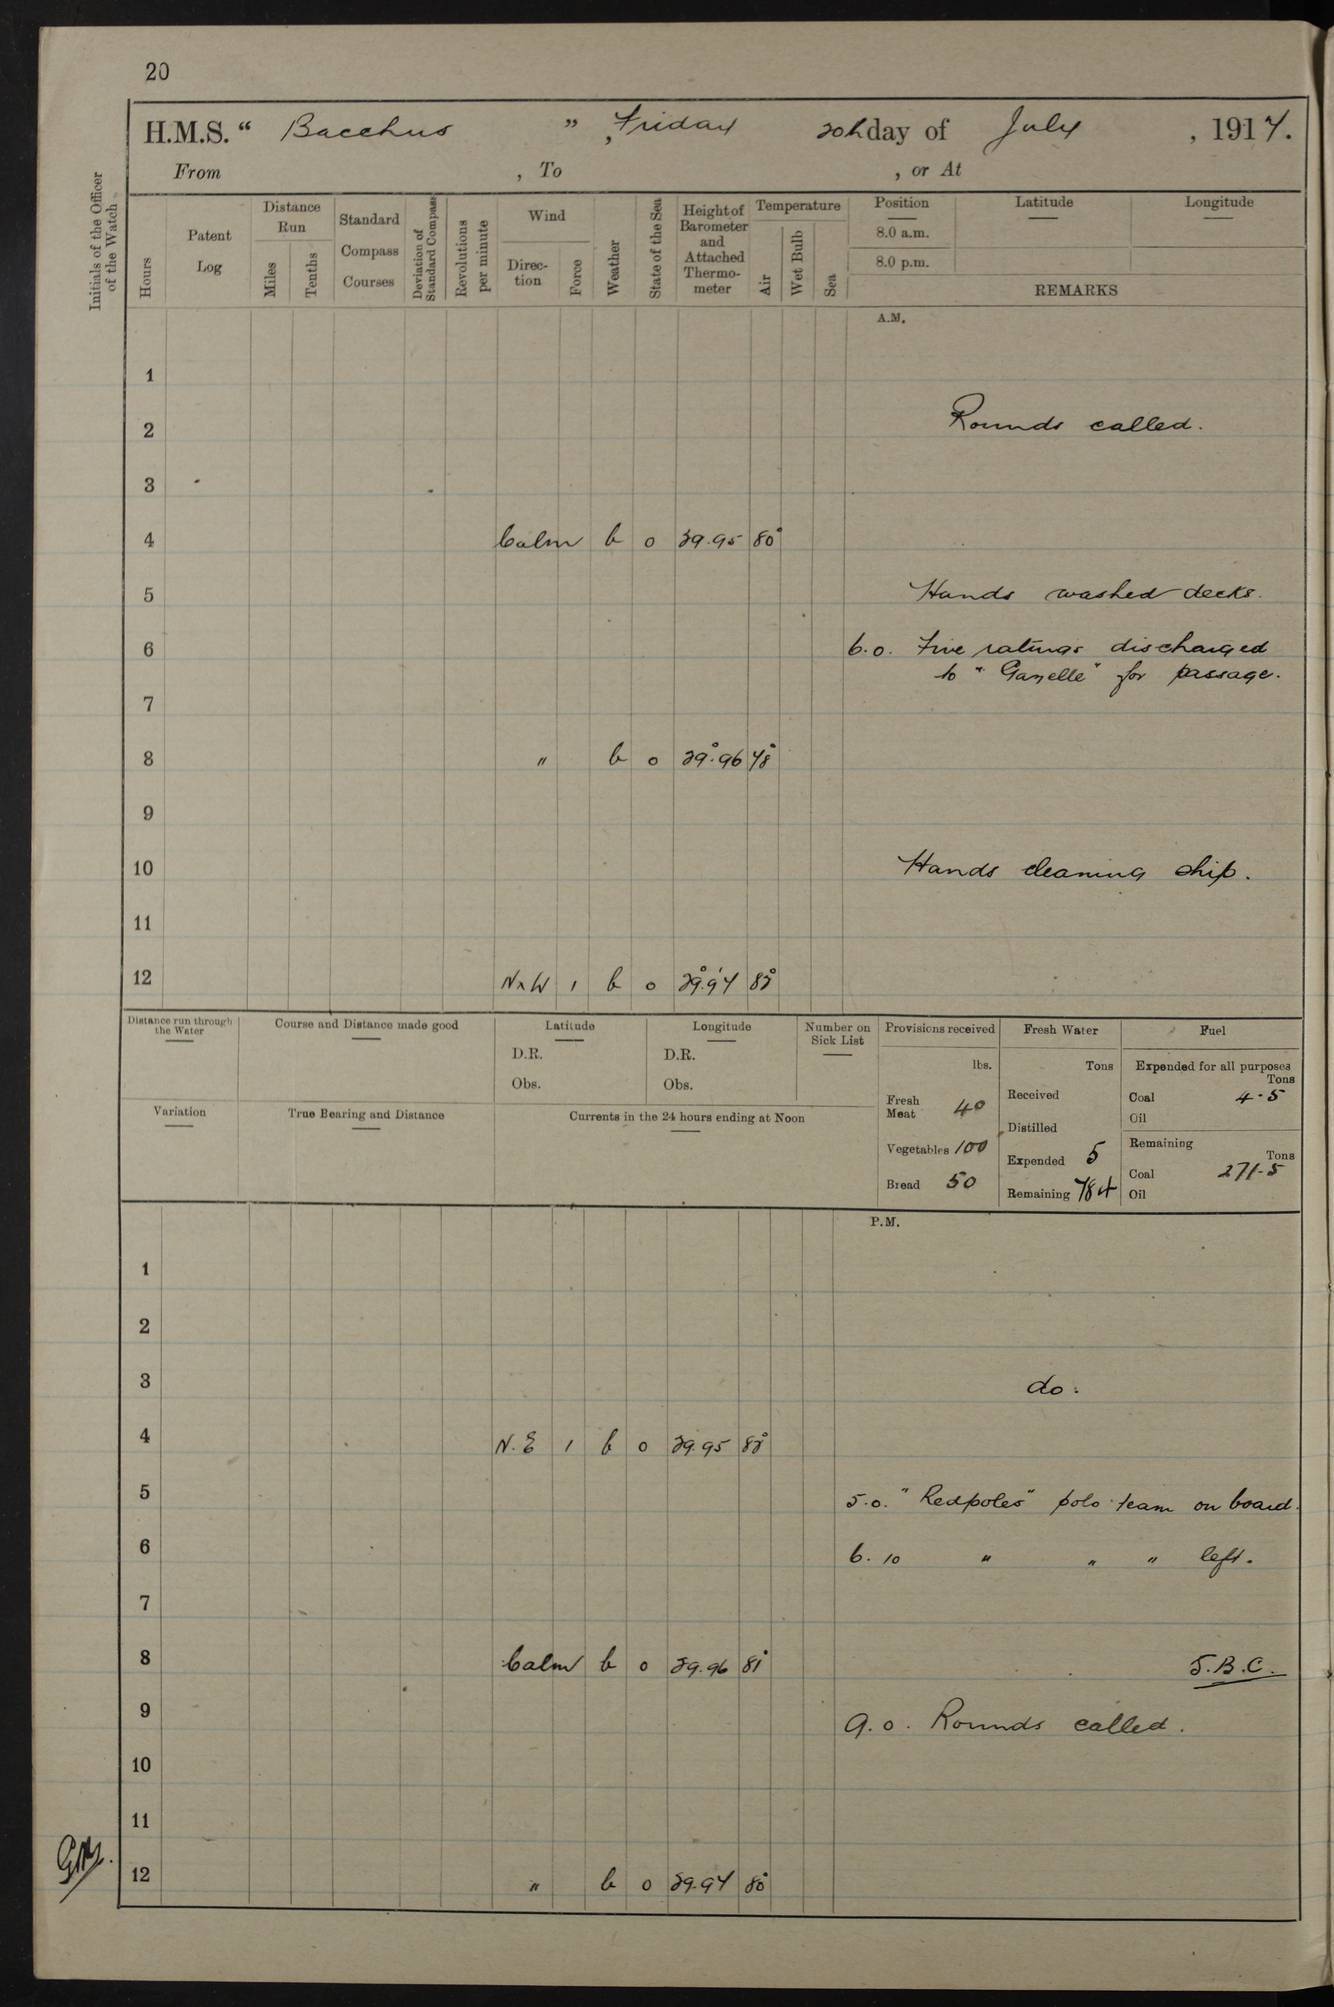 20
H.M.S. “ Bacchus ” , Friday 20th day of July , 1917.
From , To , or At
Initials of the Officer of the Wach
Hours
Patent Log
Distance Run
Miles
Tenths
Standard Compass Courses
Deviation of Standard Compass
Revolutions per minute
Wind
Direction
Force
Weather
State of the Sea
Height of Barometer and Attached Thermo-meter
Temperature
Air
Wet Bulb
Sea
Position
8.0 a.m.
8.0 p.m.
Latitude
Longitude
REMARKS
A.M.
1
2 Rounds called.
3
4 Calm b 0 29.95 80°
5 Hands washed decks.
6 6.0. Five ratings discharged
to "Gazelle" for passage.
7
8 " b 0 29.96 78°
9
10 Hands cleaning ship.
11
12 NxW 1 b 0 29.97 82°
Distance run through the Water
Course and Distance made good
Latitude
D.R.
Obs.
Longitude
D.R.
Obs.
Number on Sick List
Variation
True Bearing and Distance
Currents in the 24 hours ending at Noon
Provisions received
lbs.
Fresh Meat 40
Vegetables 100
Bread 50
Fresh Water
Tons
Received
Distilled
Expended 5
Remaining 784
Fuel
Expended for all purposes
Tons
Coal 4.5
Oil
Remaining
Tons
Coal 271.5
Oil
P.M.
1
2
3 do.
4 N.E 1 b 0 29.95 82°
5 5.0. "Redpoles" polo team on board.
6 6.10 " " " left.
7
8 Calm b 0 29.96 81° S.B.C.
9 9.0. Rounds called.
10
11
12 " b 0 29.97 80°